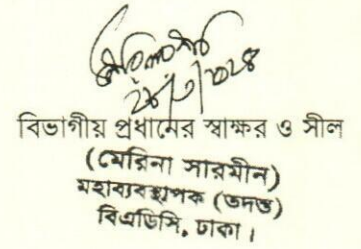 বিভাগীয় প্রধানের স্বাক্ষর ও সীল
(মেরিনা সারমীন)
মহাব্যবস্থাপক (তদন্ত)
বিএডিসি, ঢাকা।